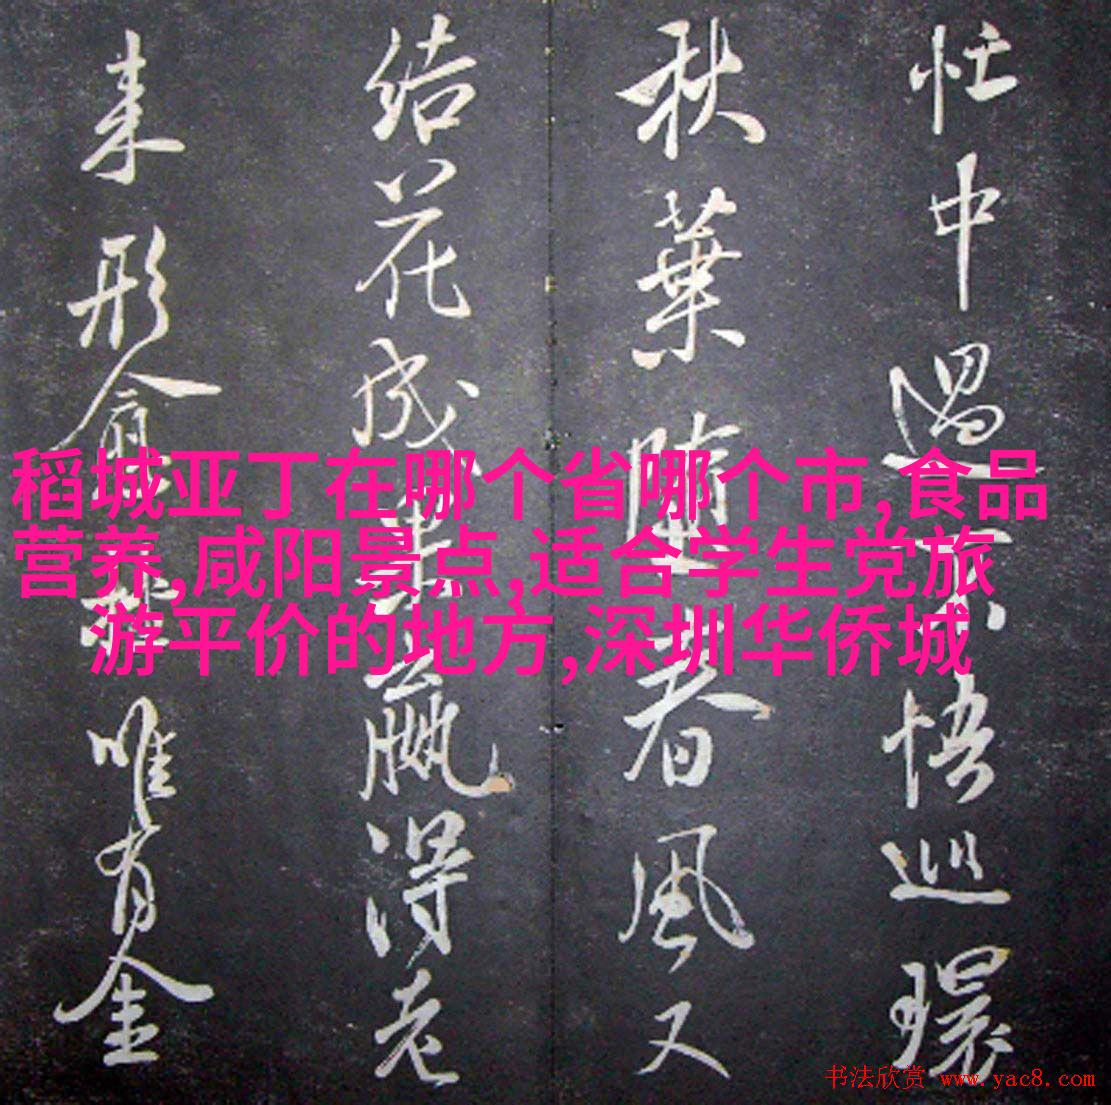 忙中過不悟巡環
秋葉隨春風又
结花成嬴得老
来形唯有金
稻城亚丁在哪个省哪个市,食品
营养,咸阳景点,适合学生党旅
游平价的地方,深圳华侨城
书法欣赏 www.yac8.com